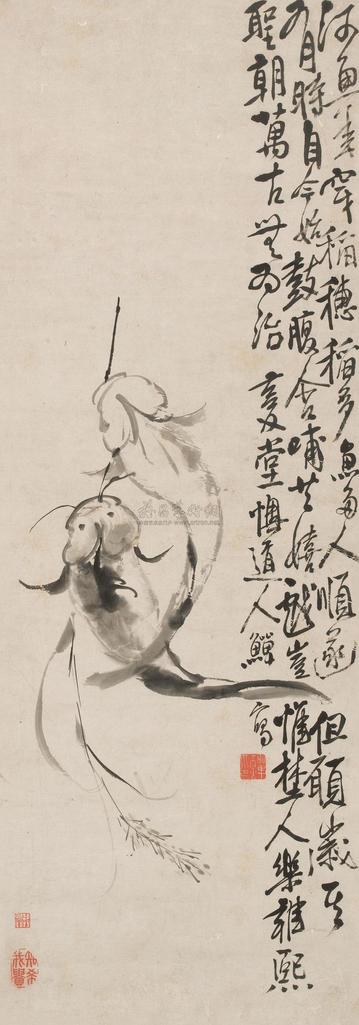 河魚一束穿稻穗稻多魚多人順遂但願歲其
有時自今始鼓腹含哺共嬉戲豈惟埜人樂雍熙
聖朝萬古無為治 復堂懊道人鱓寫